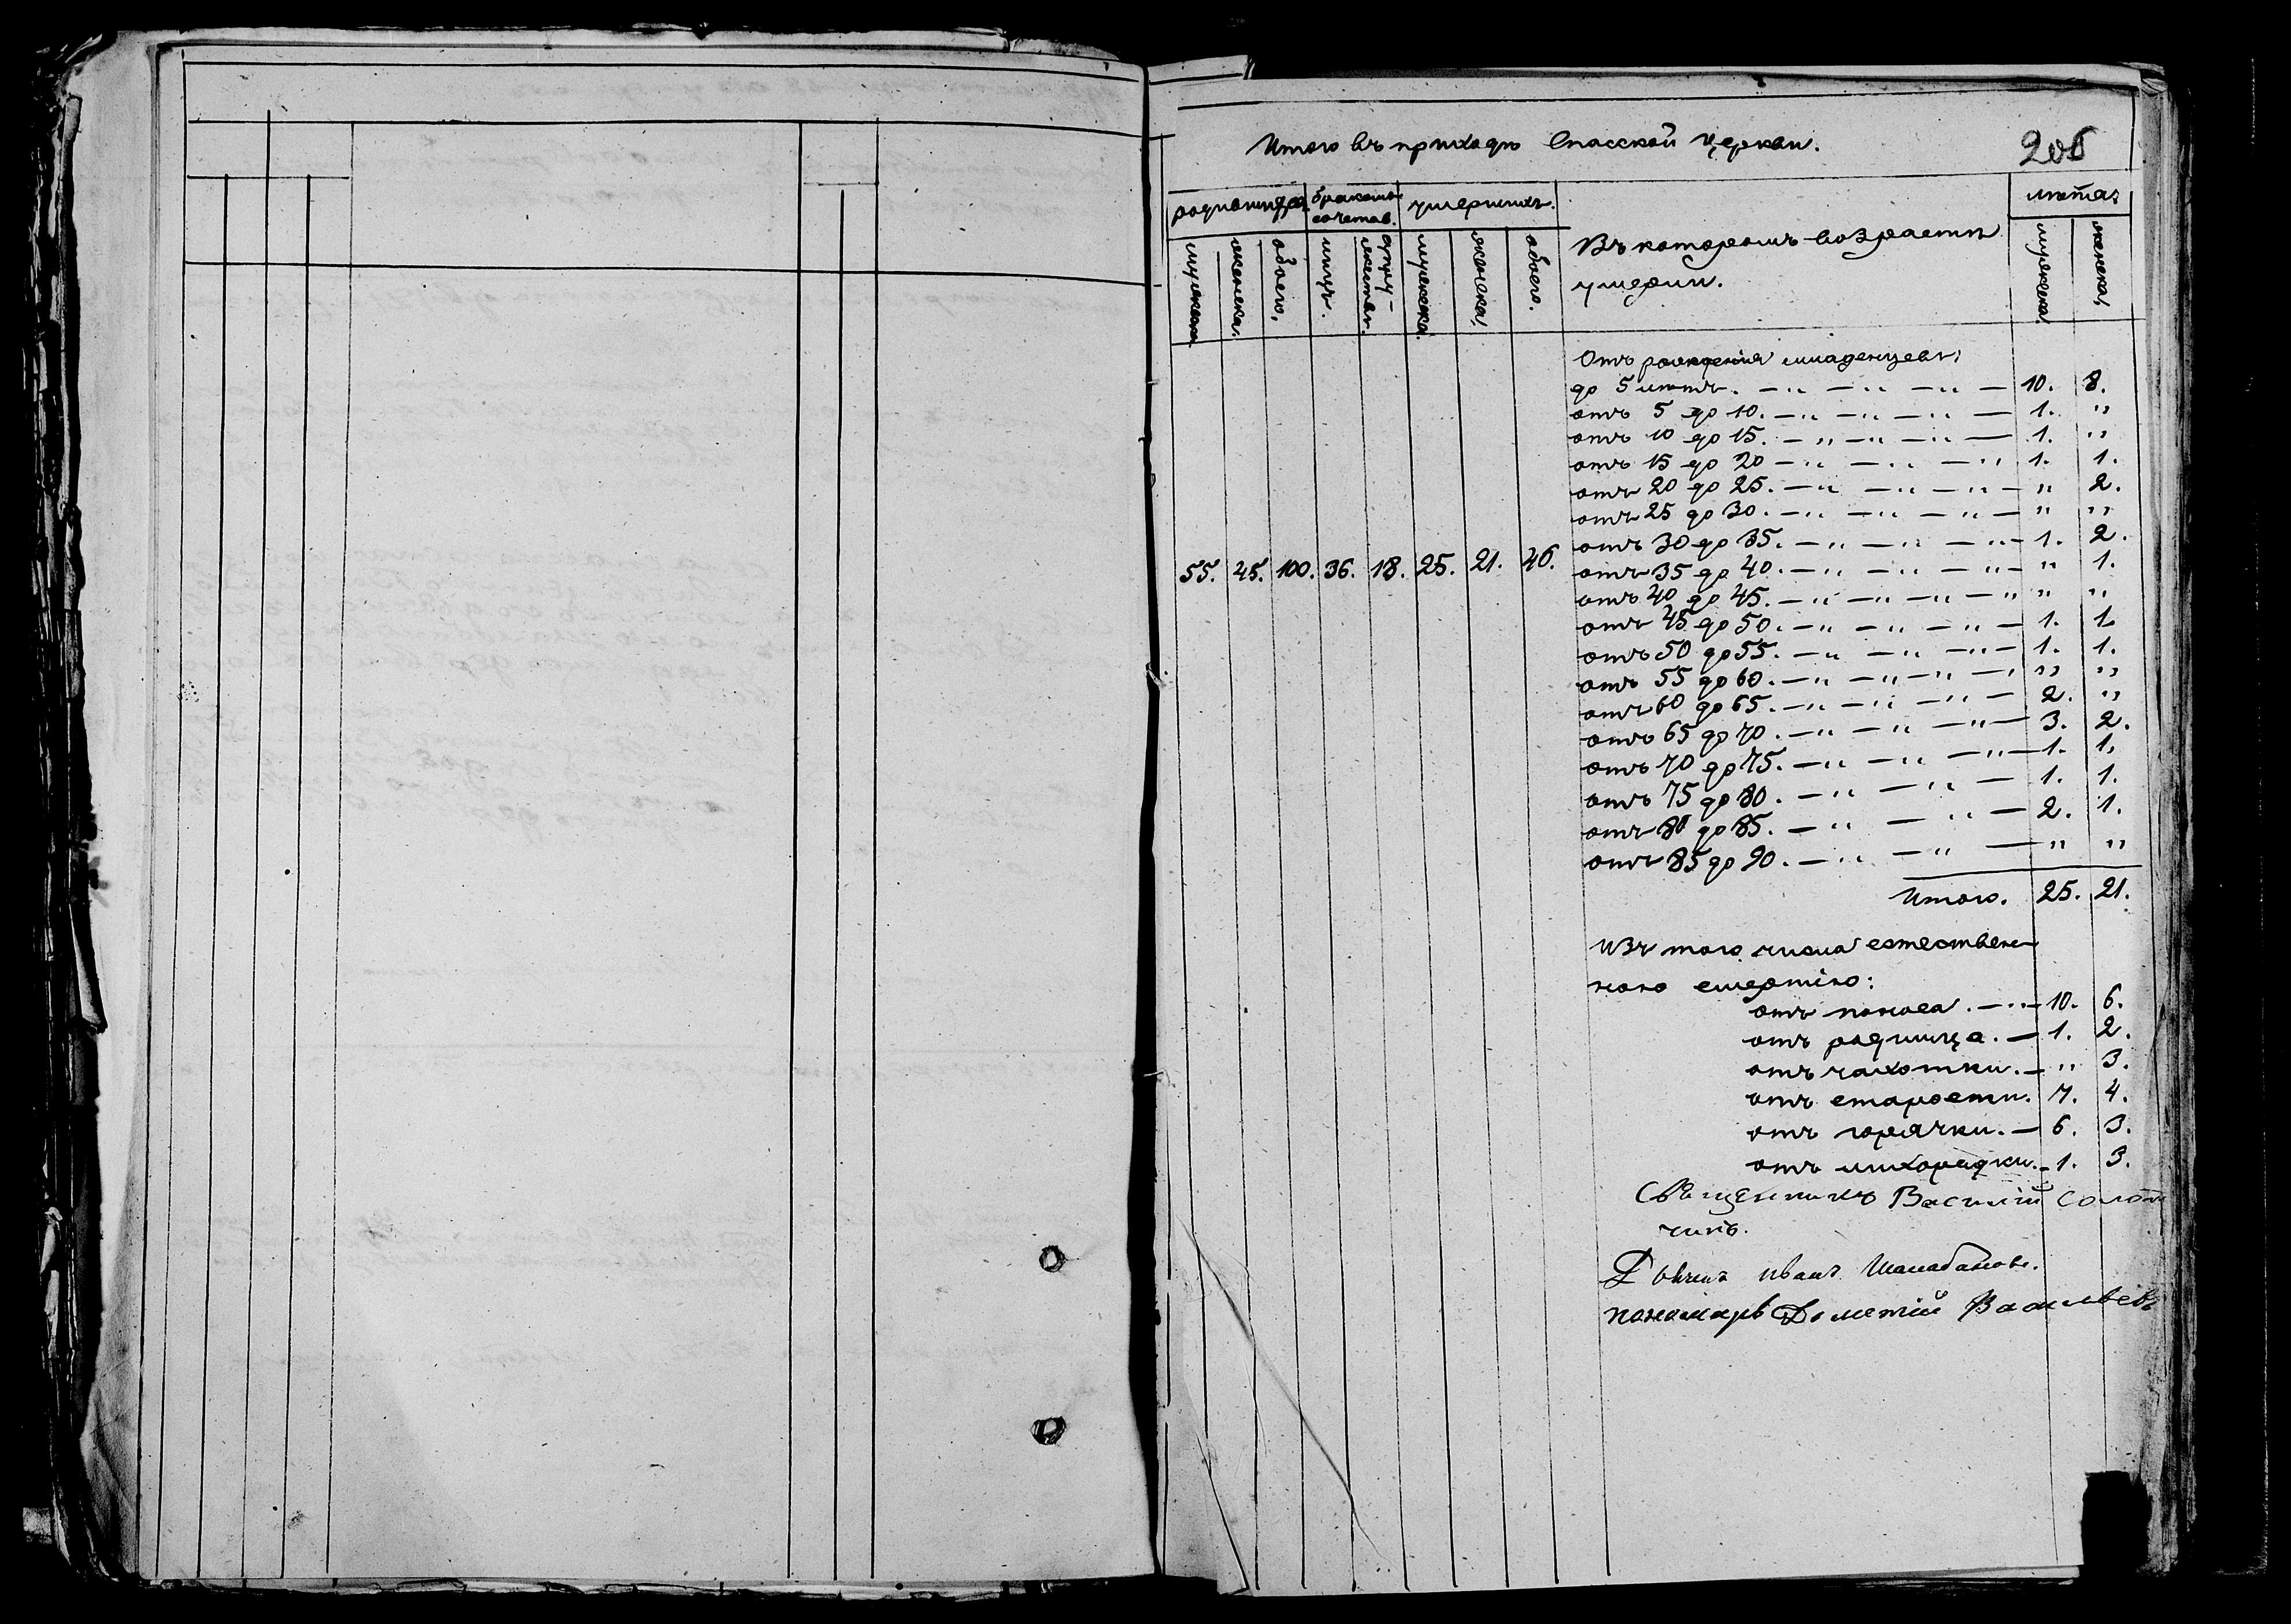 Итого въ приходѣ Спасской церкви.
206
родившихся бракомъ сочетав. умершихъ. лѣта.
мужеска. женска. обоего. лицъ. супружествъ. мужеска. женска. обоего. Въ которомъ возрастѣ умерли. мужеска. женска.
Отъ рожденія младенцевъ
до 5 лѣтъ. — „ — „ — „ — 10. 8.
отъ 5 до 10. — „ — „ — „ — 1. „
отъ 10 до 15. — „ — „ — „ — 1. „
отъ 15 до 20 — „ — „ — „ 1. 1.
отъ 20 до 25. — „ — „ — „ — „ 2.
отъ 25 до 30. — „ — „ — „ — „ „
отъ 30 до 35. — „ — „ — „ — 1. 2.
55. 45. 100. 36. 18. 25. 21. 46. отъ 35 до 40. — „ — „ — „ — „ 1.
отъ 40 до 45. — „ — „ — „ — „ „ „
отъ 45 до 50. — „ — „ — „ — 1. 1.
отъ 50 до 55. — „ — „ — „ — 1. 1.
отъ 55 до 60. — „ — „ — „ — „ „ „
отъ 60 до 65. — „ — „ — „ — 2. „
отъ 65 до 70. — „ — „ — „ — 3. 2.
отъ 70 до 75. — „ — „ — „ — 1. 1.
отъ 75 до 80. — „ — „ — 1. 1.
отъ 80 до 85. — „ — „ — 2. 1.
отъ 85 до 90. — „ — „ — „ „
Итого. 25. 21.
Изъ того числа естествен-
ною смертію:
отъ поноса. — „ — 10. 6.
отъ родимца. — 1. 2.
отъ чахотки. — „ 3.
отъ старости. 7. 4.
отъ горячки. — 6. 3.
отъ лихорадки. — 1. 3.
Священникъ Василій
чинъ.
Дьячекъ Иванъ
пономарь Дометій Васильевъ